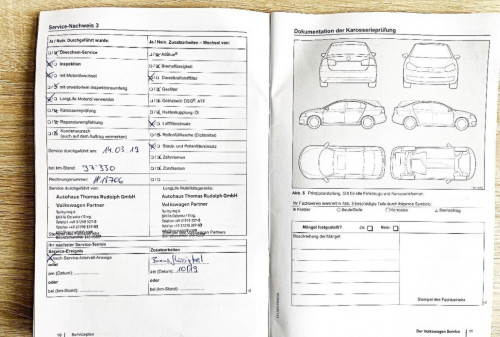 Service-Nachweis 3
Ja / Nein Durchgeführt wurde:
Ölwechsel-Service
Inspektion
mit Motorölwechsel
mit erweitertem Inspektionsumfang
LongLife Motoröl verwendet
Karosserieprüfung
Reparaturempfehlung
Kundenwunsch
(auch auf dem Auftrag vermerken)
Service durchgeführt am: 14.03.19
bei km-Stand: 97 330
Rechnungsnummer:
Service durchgeführt von:
Autohaus Thomas Rudolph GmbH
Volkswagen Partner
Ihr nächster Service-Termin
Service-Ereignis
nach Service-Intervall-Anzeige
oder
am (Datum):
oder
bei (km-Stand):
10 Serviceplan
Ja / Nein Zusatzarbeiten - Wechsel von:
AdBlue®
Bremsflüssigkeit
Dieselkraftstofffilter
Gasfilter
Getriebeöl: DSG®, ATF
Haldexkupplung: Öl
Luftfiltereinsatz
Reifenfüllflasche (Dichtmittel)
Staub- und Pollenfiltereinsatz
Zahnriemen
Zündkerzen
LongLife Mobilitätsgarantie:
Autohaus Thomas Rudolph GmbH
Volkswagen Partner
Zusatzarbeiten
Bremsflüssigkeit
am (Datum): 10/19
oder
bei (km-Stand):
Dokumentation der Karosserieprüfung
Abb. 5 Prinzipdarstellung. Gilt für alle Fahrzeuge und Karosserieformen.
Ihr Fachbetrieb
Kratzer
Beule/Delle
Korrosion
Steinschlag
Mängel festgestellt? Ja: Nein:
Beschreibung der Mängel:
Stempel des Fachbetriebs
Der Volkswagen Service 11